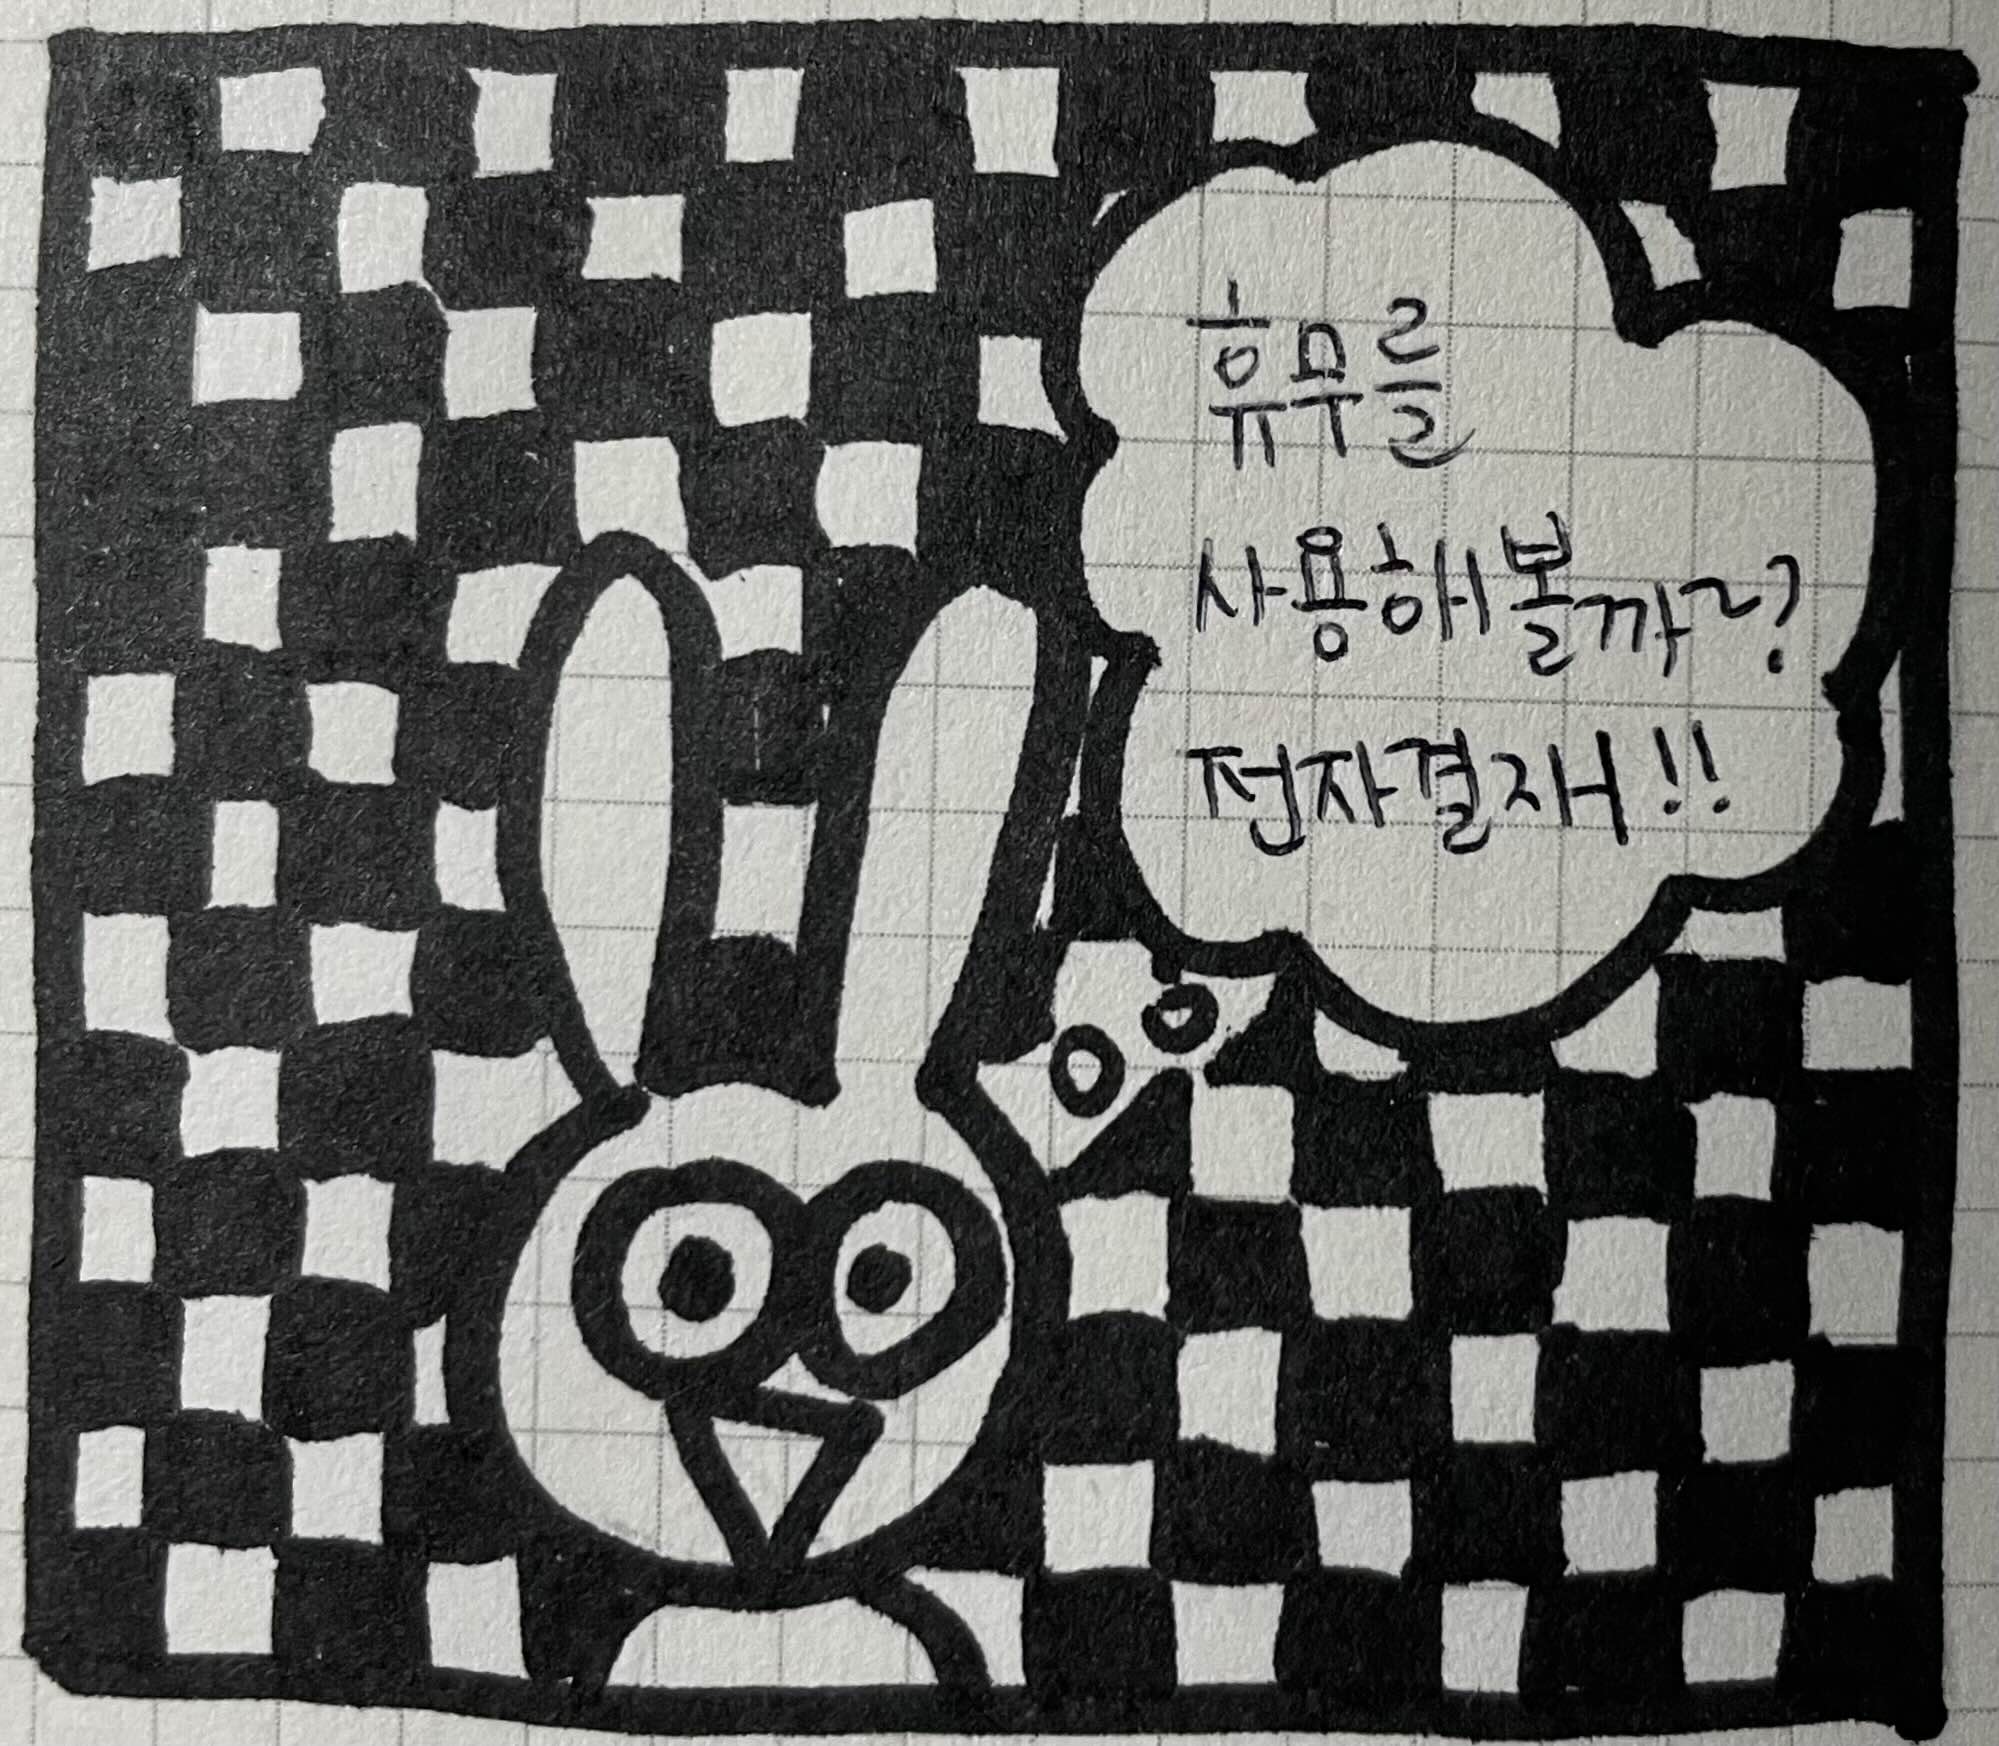 휴무를
사용해볼까~?
전자결재!!